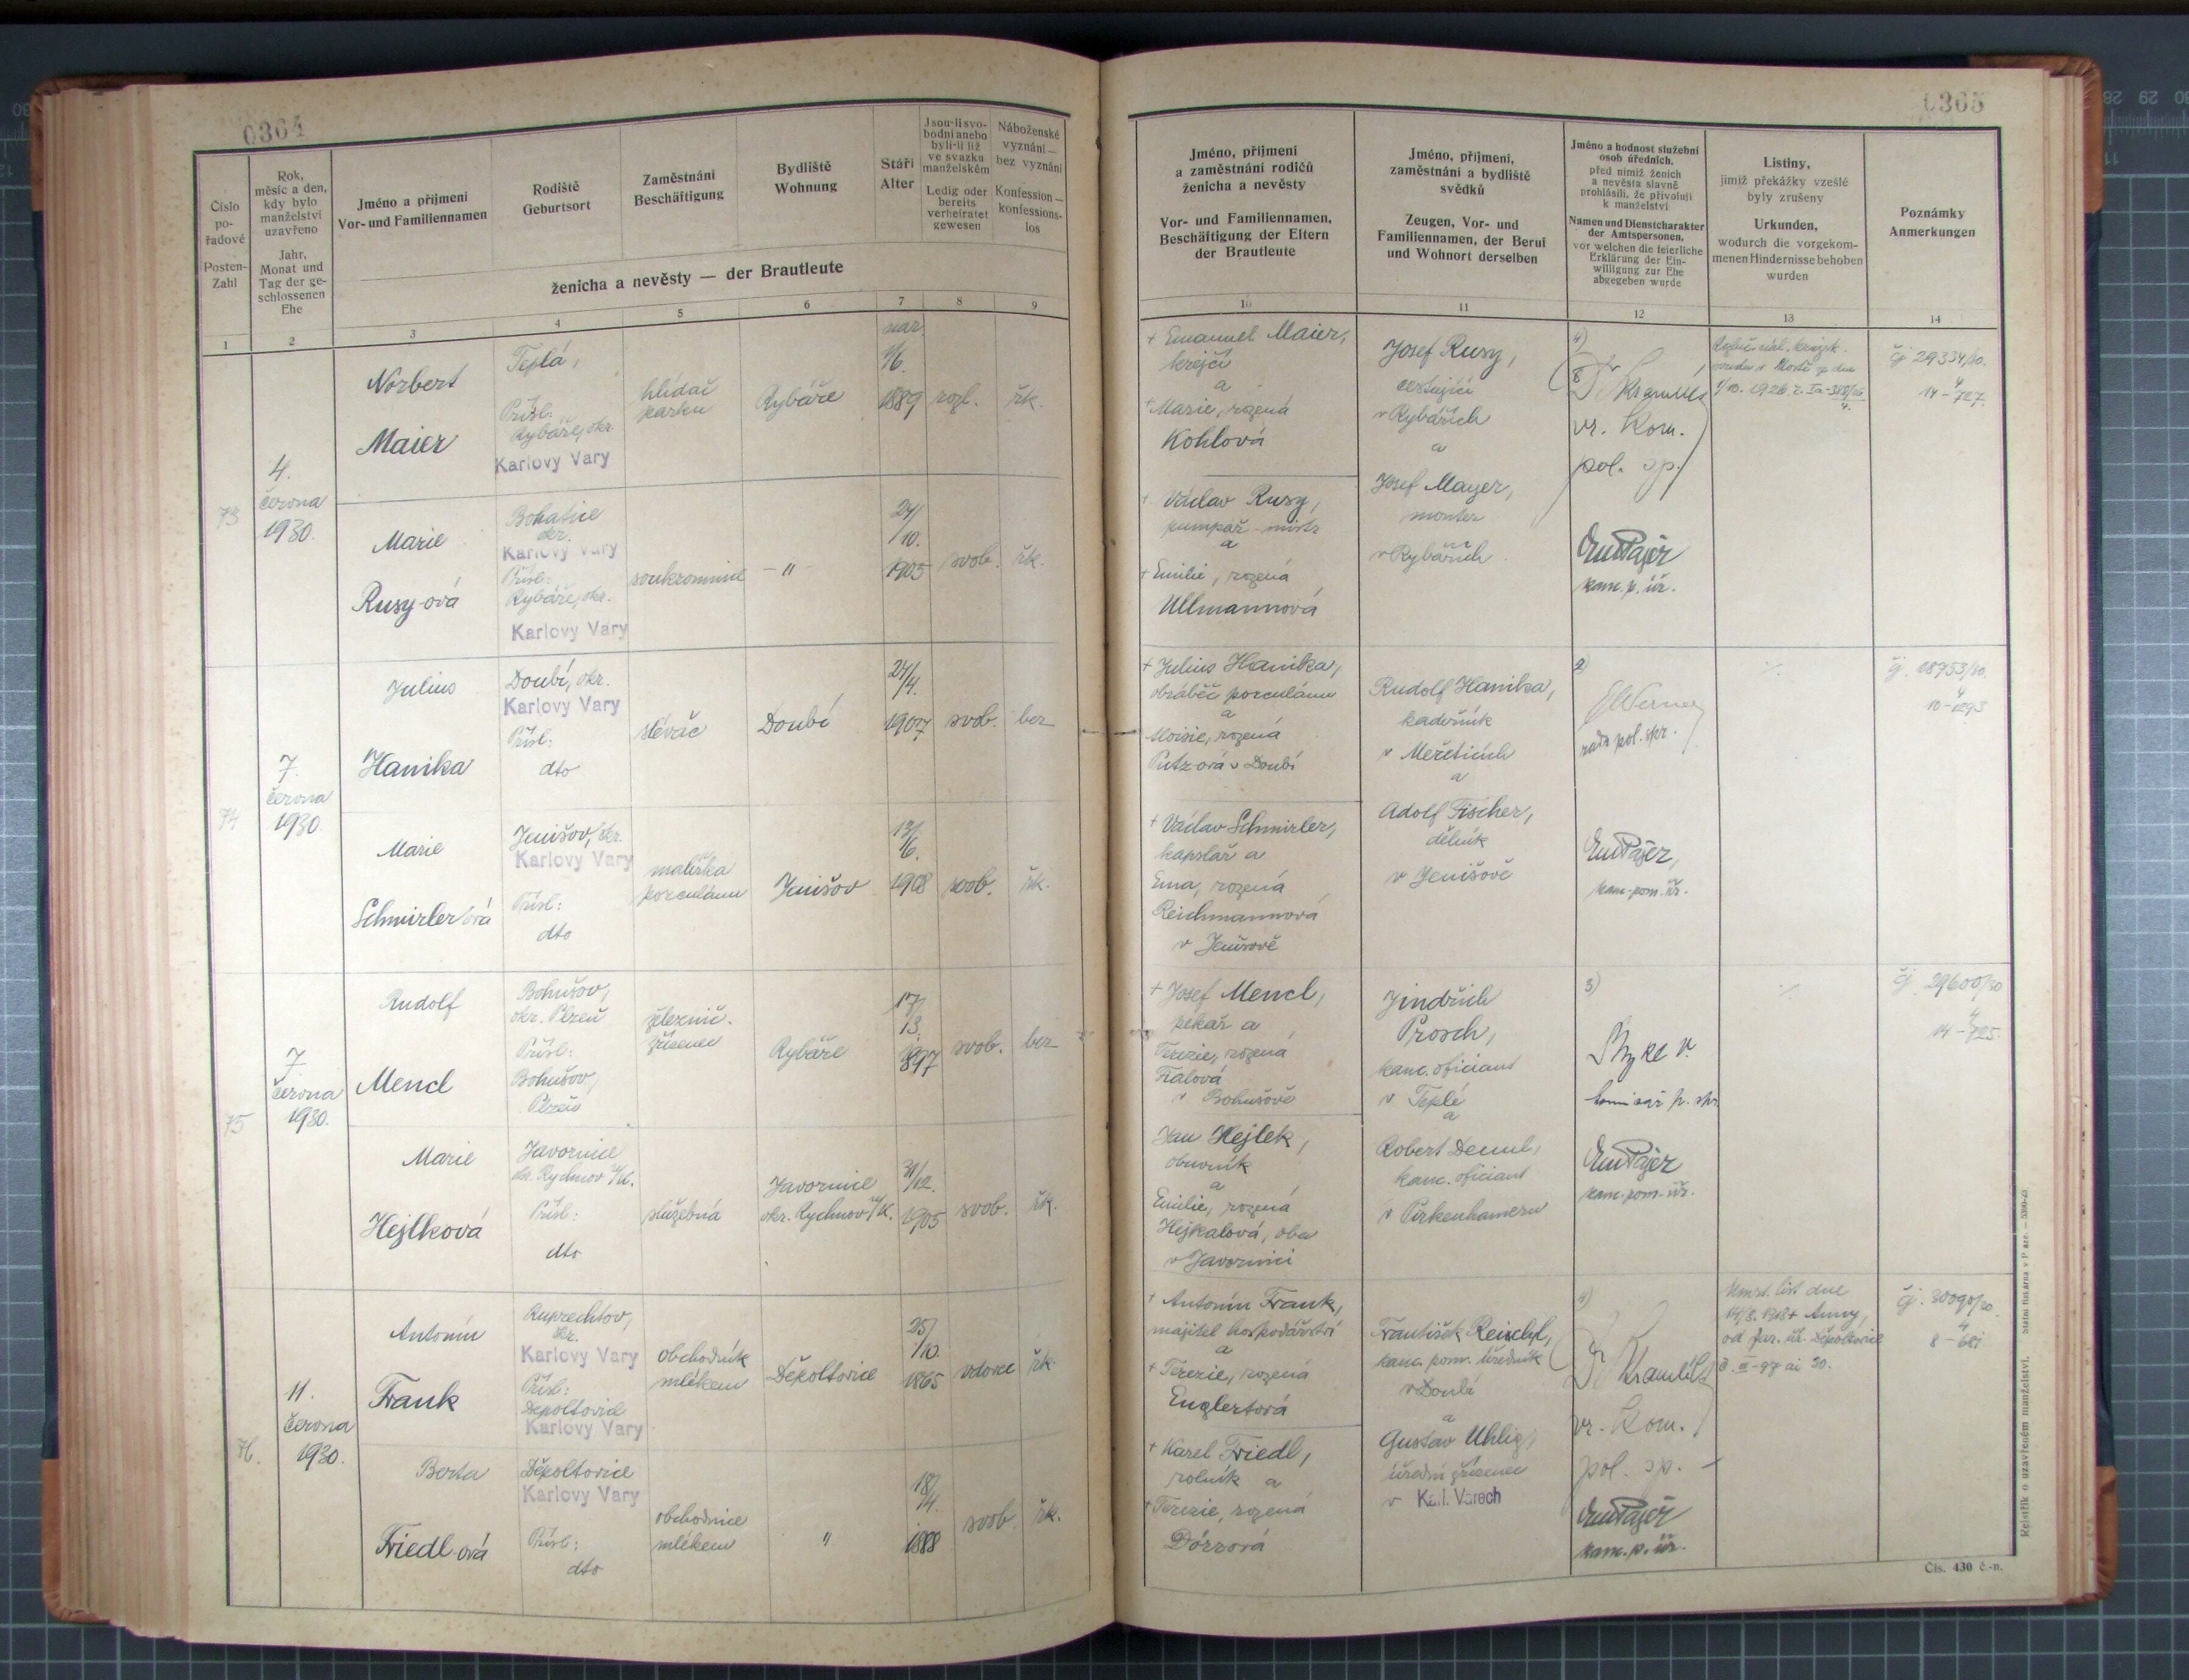 0364
Číslo
po-
řadové
Posten-
Zahl
Rok,
měsíc a den,
kdy bylo
manželství
uzavřeno
Jahr,
Monat und
Tag der ge-
schlossenen
Ehe
Jméno a příjmení
Vor- und Familiennamen
Rodiště
Geburtsort
Zaměstnání
Beschäftigung
Bydliště
Wohnung
Stáří
Alter
Jsou-li svo-
bodni anebo
byli-li již
ve svazku
manželském
Ledig oder
bereits
verheiratet
gewesen
Náboženské
vyznání —
bez vyznání
Konfession —
konfessions-
los
ženicha a nevěsty — der Brautleute
1
2
3
4
5
6
7
8
9
73
4.
června
1930.
Norbert
Maier
Teplá,
Přísl:
Rybáře, okr.
Karlovy Vary
hlídač
parku
Rybáře
nar.
1/6.
1889
rozl.
řk.
Marie
Rusy-ová
Bohatice
okr.
Karlovy Vary
Přísl:
Rybáře, okr.
Karlovy Vary
soukromnice
- " -
24/
/10.
1905
svob.
řk.
74
7.
června
1930.
Julius
Hanika
Doubí, okr.
Karlovy Vary
Přísl:
dto
slévač
Doubí
24/
/4.
1907
svob.
bez
Marie
Schmirler ová
Jenišov, okr.
Karlovy Vary
Přísl:
dto
malířka
porculánu
Jenišov
13/
/6.
1908
svob.
řk.
75
7.
června
1930.
Rudolf
Mencl
Bohušov,
okr. Plzeň
Přísl:
Bohušov,
Plzeň
železnič.
zřízenec
Rybáře
17/
/3.
1897
svob.
bez
Marie
Hejlková
Javornice
okr. Rychnov n/K.
Přísl:
dto
služebná
Javornice
okr. Rychnov n/K.
31/
/12.
1905
svob.
řk.
76.
11.
června
1930.
Antonín
Frank
Ruprechtov,
okr.
Karlovy Vary
Přísl:
Děpoltovice
Karlovy Vary
obchodník
mlékem
Děpoltovice
25/
/10.
1865
vdovec
řk.
Berta
Friedl-ová
Děpoltovice
Karlovy Vary
Přísl:
dto
obchodnice
mlékem
"
18/
/4.
1888
svob.
řk.
0365
Jméno, příjmení
a zaměstnání rodičů
ženicha a nevěsty
Vor- und Familiennamen,
Beschäftigung der Eltern
der Brautleute
Jméno, příjmení,
zaměstnání a bydliště
svědků
Zeugen, Vor- und
Familiennamen, der Beruf
und Wohnort derselben
Jméno a hodnost služební
osob úředních,
před nimiž ženich
a nevěsta slavně
prohlásili, že přivolují
k manželství
Namen und Dienstcharakter
der Amtspersonen,
vor welchen die feierliche
Erklärung der Ein-
willigung zur Ehe
abgegeben wurde
Listiny,
jimiž překážky vzešlé
byly zrušeny
Urkunden,
wodurch die vorgekom-
menen Hindernisse behoben
wurden
Poznámky
Anmerkungen
10
11
12
13
14
+ Emanuel Maier,
krejčí
a
+ Marie, rozená
Kohlová
+ Václav Rusy,
pumpař - mistr
a
+ Emilie, rozená
Ullmannová
Josef Rusy,
cestující
v Rybářích
a
Josef Mayer,
montér
v Rybářích.
vr. kom.
pol. sp.
kanc. p. úř.
čj 29334/30.
4
14 - 727.
+ Julius Hanika,
obráběč porculánu
a
rozená
Putz-ová v Doubí
+ Václav Schmirler,
kapslář a
Ema, rozená
Reichmannová
v Jenišově
Rudolf Hanika,
kadeřník
v Meřeticích
a
Adolf Fischer,
dělník
v Jenišově
2)
rada pol. spr.
kanc. pom. úř.
·/.
čj. 28953/30.
4
+ Josef Mencl,
pekař a
Terezie, rozená
Fialová
v Bohušově
Jan Hejlek,
obuvník
a
Emilie, rozená
Hejkalová, oba
v Javornici
Jindřich
Prosch,
kanc. oficiant
v Teplé
a
Robert Deml,
kanc. oficiant
v Pirkenhameru
3)
komisař p. spr.
kanc. pom. úř.
·/.
čj 29600/30
4
14 - 725.
+ Antonín Frank,
majitel hospodářství
a
+ Terezie, rozená
Englertová
+ Karel Friedl,
rolník a
+ Terezie, rozená
Dörrová
František Reischl,
kanc. pom. úředník
a
Gustav Uhlig,
úřední zřízenec
v Karl. Varech
vr. kom.
pol. sp. -
kanc. p. úř.
Úmrt. list dne
14/8. 1918 + Anny,
od far. úř. Děpoltovice
čj. 30090/30.
4
8 - 681
Rejstřík o uzavřeném manželství.
Čís. 430 č.-n.